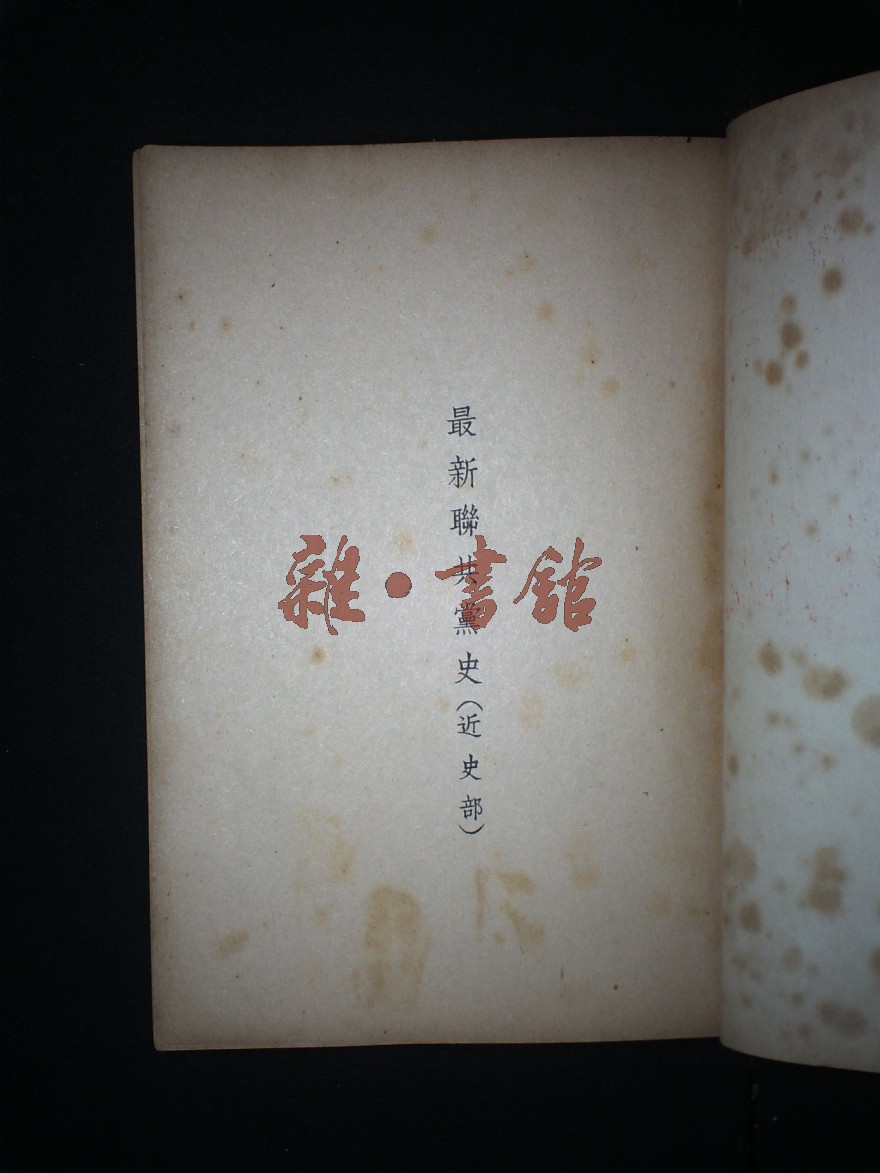 最新聯共黨史(近史部)
雜·書館